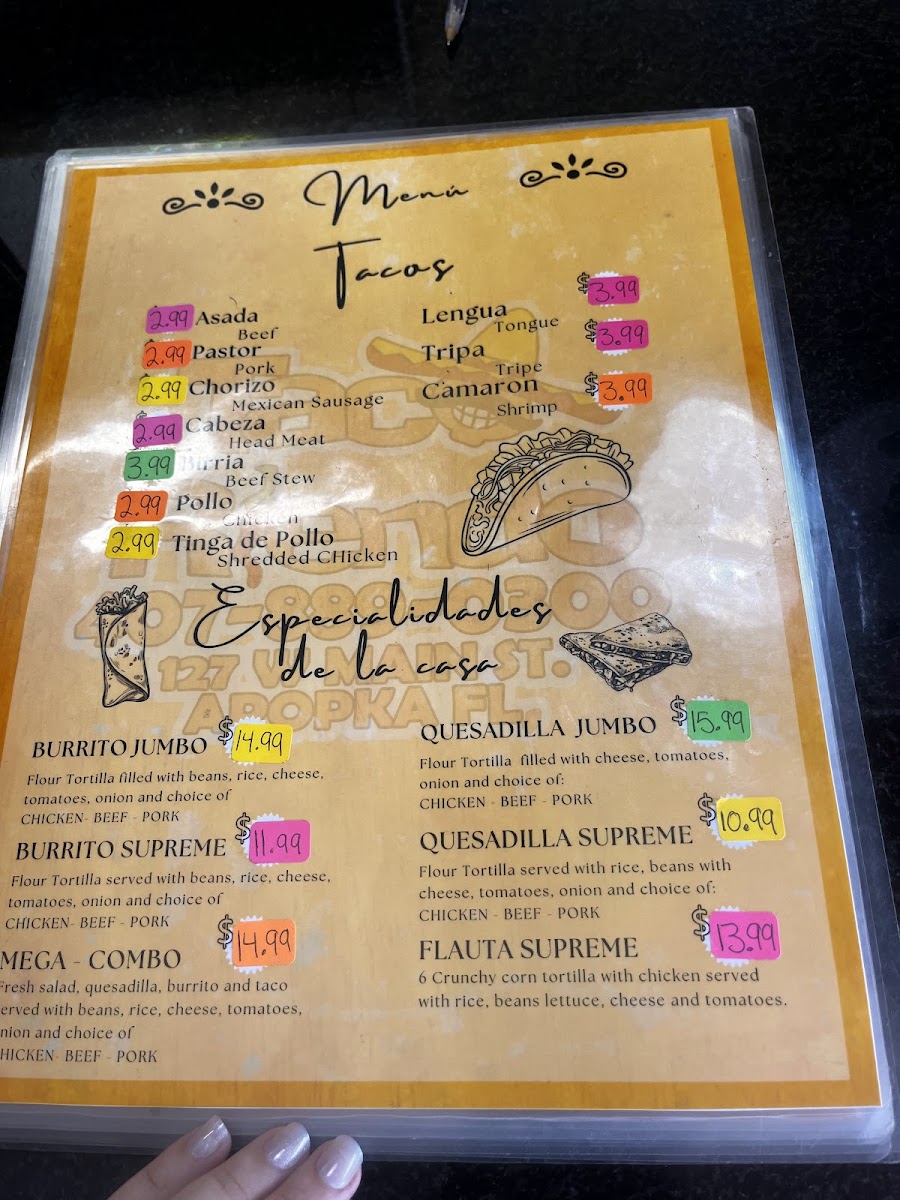 Menú
Tacos
2.99 Asada
Beef
2.99 Pastor
Pork
2.99 Chorizo
Mexican Sausage
2.99 Cabeza
Head Meat
3.99 Birria
Beef Stew
2.99 Pollo
Chicken
2.99 Tinga de Pollo
Shredded CHicken
Lengua $3.99
Tongue
Tripa $3.99
Tripe
Camaron $3.99
Shrimp
407-889-0300
127 W. MAIN ST.
APOPKA FL.
Especialidades
de la casa
BURRITO JUMBO $14.99
Flour Tortilla filled with beans, rice, cheese,
tomatoes, onion and choice of
CHICKEN- BEEF - PORK
BURRITO SUPREME $11.99
Flour Tortilla served with beans, rice, cheese,
tomatoes, onion and choice of
CHICKEN- BEEF - PORK
MEGA - COMBO $14.99
Fresh salad, quesadilla, burrito and taco
erved with beans, rice, cheese, tomatoes,
nion and choice of
HICKEN- BEEF - PORK
QUESADILLA JUMBO $15.99
Flour Tortilla filled with cheese, tomatoes,
onion and choice of:
CHICKEN - BEEF - PORK
QUESADILLA SUPREME $10.99
Flour Tortilla served with rice, beans with
cheese, tomatoes, onion and choice of:
CHICKEN - BEEF - PORK
FLAUTA SUPREME $13.99
6 Crunchy corn tortilla with chicken served
with rice, beans lettuce, cheese and tomatoes.